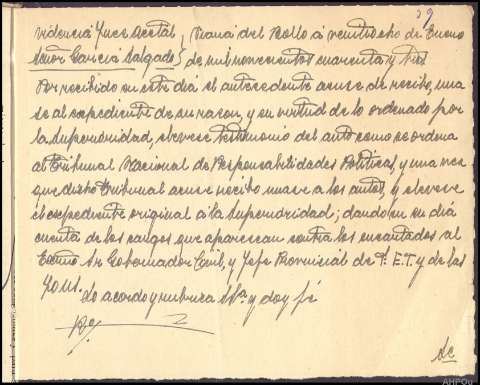 29
videncia Juez acctal } Viana del Bollo a veintiocho de Enero
Señor García Salgado } de mil novecientos cuarenta y tres
Por recibido en este día el antecedente acuse de recibo, una
se al expediente de su razon, y en virtud de lo ordenado por
la Superioridad, elevese testimonio del auto como se ordena
al Tribunal Nacional de Responsabilidades Politicas, y una vez
que dicho Tribunal acuse recibo, unase a los autos, y elevese
el expediente original a la Superioridad; dando en su día
cuenta de los cargos que aparezcan contra los encartados al
Excmo Sr Gobernador Civil, y Jefe Provincial de F. E. T. y de las
Jons.
Lo acordo y rubrica Sª. y doy fé
AHPOu